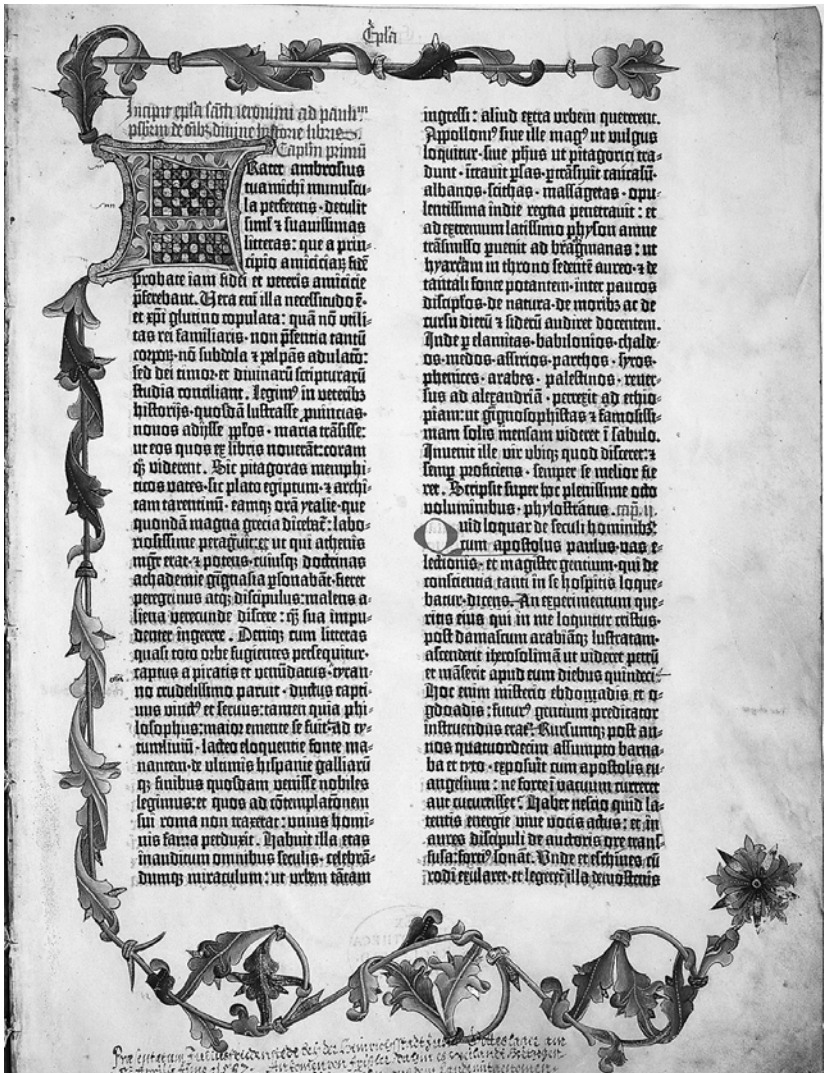 Ep̃la
Incipit ep̃la sãcti ieronimi ad paulinũ
p̃sbiterũ de õnibꝫ divine historie libris
Capl̃m primũ
Frater ambrosius
tua michi munuscu-
la perferens · detulit
siml̃ ⁊ suavissimas
litteras: que a prin-
cipio amiciciaꝝ · fidẽ
probate iam fidei et veteris amicicie
p̃ferebant. Vera eñi illa necessitudo ẽ ·
et xp̃i glutino copulata: quã nõ utili-
tas rei familiaris · non p̃sentia tantũ
corporꝫ · nõ subdola ⁊ palpãs adulatõ:
sed dei timor · et divinarũ scripturarũ
studia conciliant. Legimꝰ in veteribꝫ
historijs · quosdã lustrasse ꝓvincias ·
novos adijsse ppl̃os · maria trãsisse:
ut eos quos ex libris noverãt: coram
qꝫ viderent. Sic pitagoras memphi-
ticos vates · sic plato egiptum · ⁊ archi-
tam tarentinũ · eamqꝫ orã ytalie · que
quondã magna grecia dicebat̃: labo-
riosissime peragravit: et ut qui athenis
mgr̃ erat · ⁊ potens · cuiusqꝫ doctrinas
achademie gignasia ꝑsonabãt · fieret
peregrinus atqꝫ discipulus: malens a-
liena verecunde discere: qꝫ sua impu-
denter ingerere. Deniqꝫ cum litteras
quasi toto orbe fugientes persequitur ·
captus a piratis et venũdatus · tyran-
no crudelissimo paruit · ductus capti-
vus vinctꝰ et servus: tamen quia phi-
losophus: maior emente se fuit. Ad ty-
tum liviũ · lacteo eloquentie fonte ma-
nantem · de ultimis hispanie galliarũ
qꝫ finibus quosdam venisse nobiles
legimus: et quos ad cõtemplatõnem
sui roma non traxerat: unius homi-
nis fama perduxit. Habuit illa etas
inauditum omnibus seculis · celebrã-
dumqꝫ miraculum: ut urbem tãtam
ingressi: aliud extra urbem quererent.
Appolloniꝰ sive ille magꝰ ut vulgus
loquitur · sive ph̃us ut pitagorici tra-
dunt · ĩtravit ꝑsas · ꝑtrãsivit caucasũ ·
albanos · scithas · massagetas · opu-
lentissima indie regna penetravit: et
ad extremum latissimo physon amne
trãsmisso ꝑvenit ad bragmanas: ut
hyarcam in throno sedentẽ aureo · ⁊ de
tantali fonte potantem · inter paucos
discipl̃os · de natura · de moribꝫ ac de
cursu dierũ ⁊ siderũ audiret docentem.
Inde ꝑ elamitas · babilonios · chalde-
os · medos · assirios · parthos · syros ·
phenices · arabes · palestinos · rever-
sus ad alexandriã · perrexit ad ethio-
piam: ut gignosophistas ⁊ famosissi-
mam solis mensam videret ĩ sabulo.
Invenit ille vir ubiqꝫ quod disceret: ⁊
semꝑ proficiens · semper se melior fie-
ret. Scripsit super hoc plenissime octo
voluminibus · phylostratus. cap̃. ii.
Quid loquar de seculi hominibꝫ:
cum apostolus paulus · vas e-
lectionis · et magister gentium · qui de
conscientia tanti in se hospitis loque-
batur · dicens. An experimentum que-
ritis eius qui in me loquitur cristus ·
post damascum arabiãqꝫ lustratam ·
ascenderit iherosolimã ut videret petrũ
et mãserit apud eum diebus quindecĩ ·
Hoc enim misterio ebdomadis et o-
gdoadis: futurꝰ gentium predicator
instruendus erat. Rursumqꝫ post an-
nos quatuordecim assumpto barna-
ba et tyto · exposuit cum apostolis eu-
angelium: ne forte ĩ vacuum curreret
aut cucurrisset. Habet nescio quid la-
tentis energie · vive vocis actus: et in
aures discipuli de auctoris ore trans-
fusa: fortiꝰ sonat. Unde et eschines cũ
rodi exularet · et legeret̃ illa demostenis